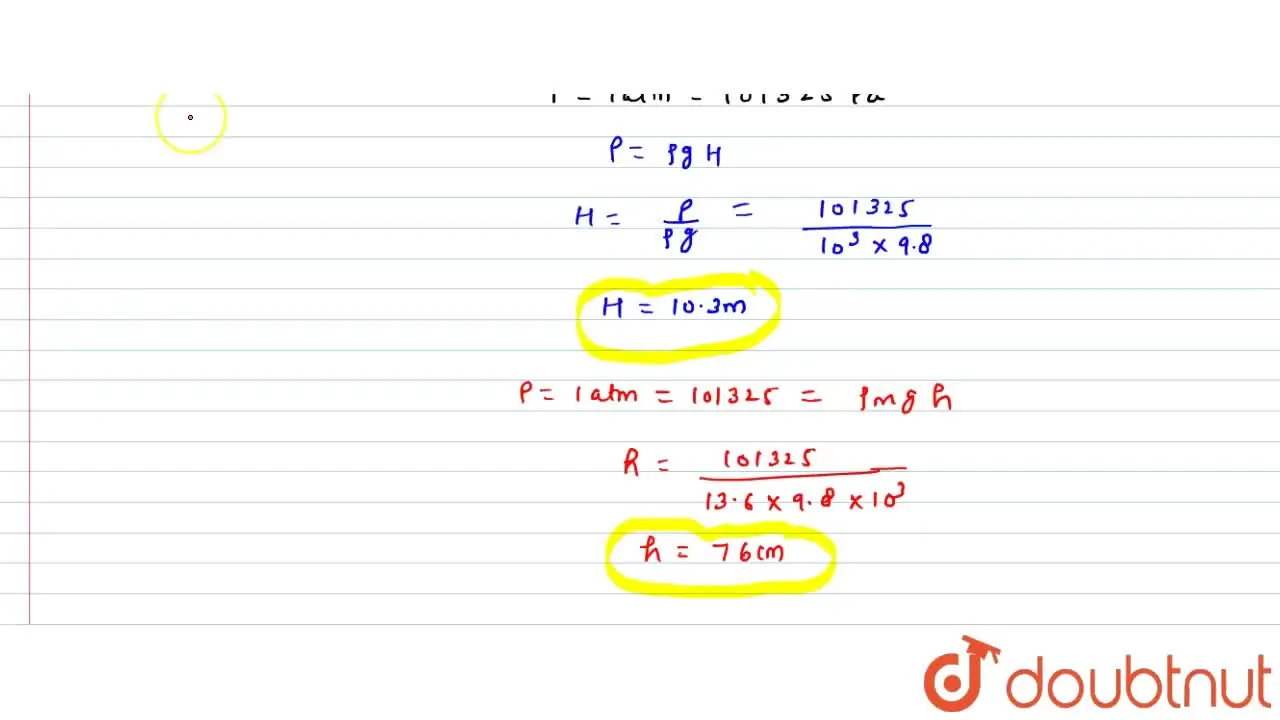 P = 1 atm = 101325 Pa
P = ρg H
H = P/ρg = 101325/10³ × 9.8
H = 10.3m
P = 1 atm = 101325 = ρm g h
h = 101325/13.6 × 9.8 × 10³
h = 76cm
doubtnut